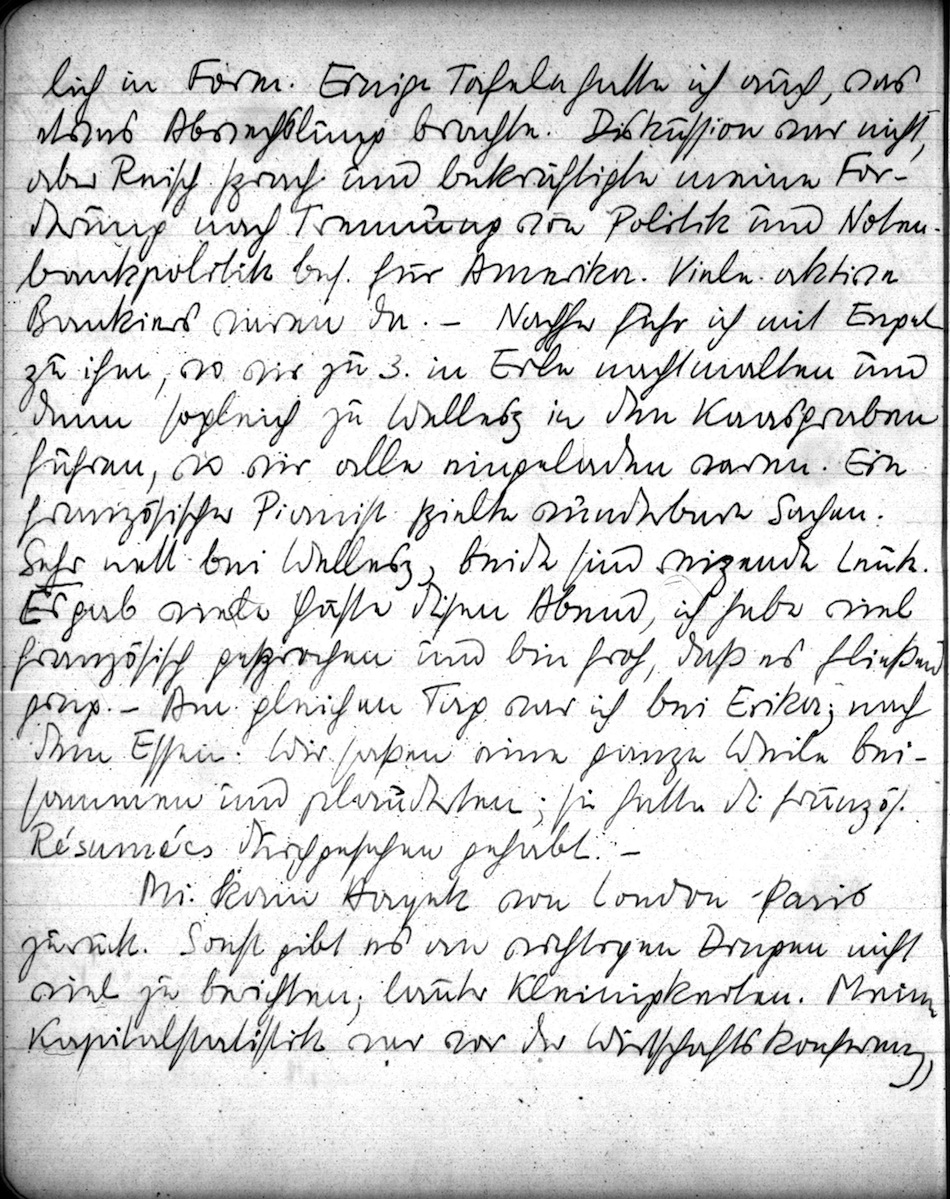 lich in Form. Einige Tafeln hatte ich auch, was
etwas Abwechslung brachte. Diskussion war nicht,
aber Reisch sprach und bekräftigte meine For-
derung nach Trennung von Politik und Noten-
bankpolitik bes. für Amerika. Viele aktive
Bankiers waren da. – Nachher fuhr ich mit Engel
zu ihm, wo wir zu 3. in Eile nachtmalten und
dann sogleich zu Wellesz in den Kaasgraben
fuhren, wo wir alle eingeladen waren. Ein
französischer Pianist spielte wunderbare Sachen.
Sehr nett bei Wellesz, beide sind reizende Leute.
Es gab viele Gäste diesen Abend, ich habe viel
französisch gesprochen und bin froh, daß es fließend
ging. – Am gleichen Tag war ich bei Erika; nach
dem Essen. Wir saßen eine ganze Weile bei-
sammen und plauderten; sie hatte die französ.
Résumées durchgesehen gehabt. –
Mi. kam Hayek von London-Paris
zurück. Sonst gibt es an wichtigen Dingen nicht
viel zu berichten; lauter Kleinigkeiten. Meine
Kapitalstatistik war vor der Wirtschaftskonferenz,